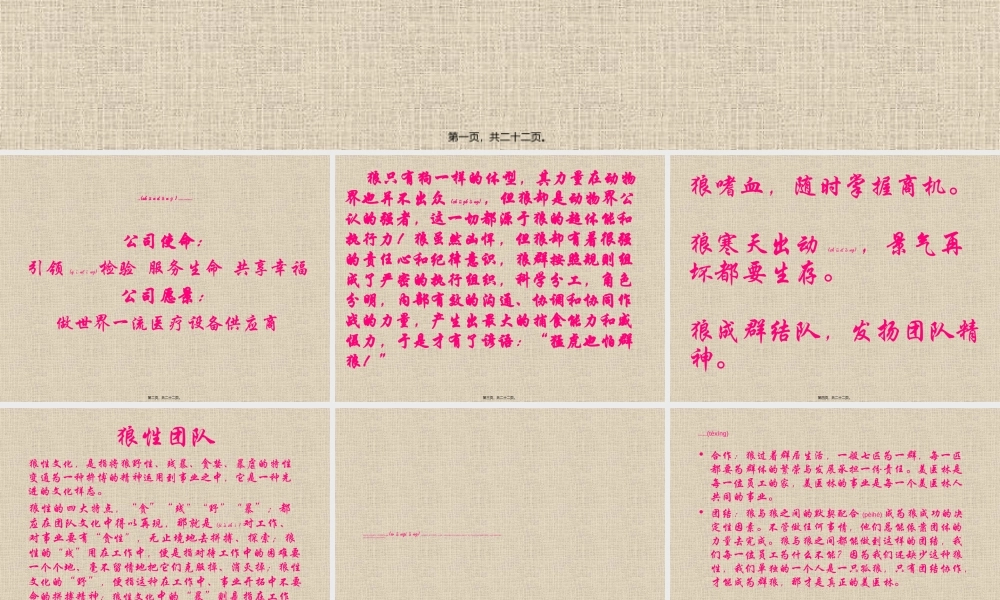 第一页，共二十二页。
公司使命：
引领检验 服务生命 共享幸福
公司愿景：
做世界一流医疗设备供应商
第二页，共二十二页。
狼只有狗一样的体型，其力量在动物
界也并不出众，但狼却是动物界公
认的强者，这一切都源于狼的超体能和
执行力！狼虽然凶悍，但狼却有着很强
的责任心和纪律意识，狼群按照规则组
成了严密的执行组织，科学分工，角色
分明，内部有效的沟通、协调和协同作
战的力量，产生出最大的捕食能力和威
慑力，于是才有了谚语：“猛虎也怕群
狼！”
第三页，共二十二页。
狼嗜血，随时掌握商机。
狼寒天出动，景气再
坏都要生存。
狼成群结队，发扬团队精
神。
第四页，共二十二页。
狼性团队
狼性文化，是指将狼野性、残暴、贪婪、暴虐的特性
变通为一种拼博的精神运用到事业之中，它是一种先
进的文化样态。
狼性的四大特点，“贪”“残”“野”“暴”；都
应在团队文化中得以再现，那就是对工作、
对事业要有“贪性”，无止境地去拼搏、探索；狼
性的“残”用在工作中，便是指对待工作中的困难要
一个个地、毫不留情地把它们克服掉、消灭掉；狼性
文化的“野”，便指这种在工作中、事业开拓中不要
命的拼搏精神；狼性文化中的“暴”则是指在工作
......(tèxìng)
• 合作：狼过着群居生活，一般七匹为一群，每一匹
都要为群体的繁荣与发展承担一份责任。美医林是
每一位员工的家，美医林的事业是每一个美医林人
共同的事业。
• 团结：狼与狼之间的默契配合(pèihé)成为狼成功的决
定性因素。不管做任何事情，他们总能依靠团体的
力量去完成。狼与狼之间都能做到这样的团结，我
们每一位员工为什么不能？因为我们还缺少这种狼
性，我们单独的一个人是一只孤狼，只有团结协作，
才能成为群狼，那才是真正的美医林。